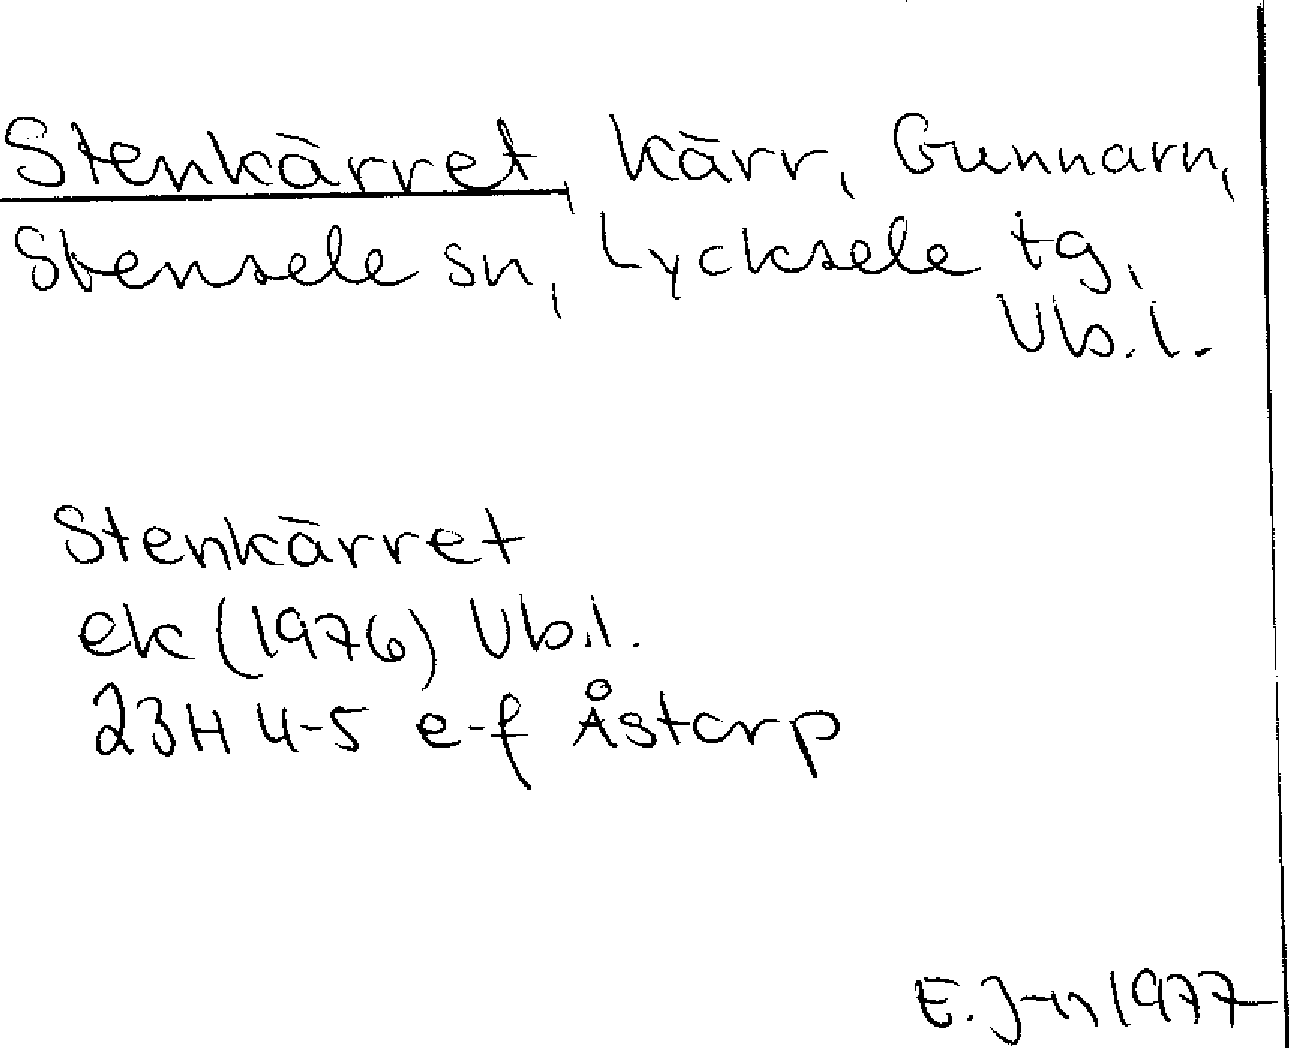 Stenkärret, kärr, Gunnarn,
Stensele sn, Lycksele tg,
Vb.l.
Stenkärret
ek (1976) Vb.l.
23H 4-5 e-f Åstorp
E. J-n 1977